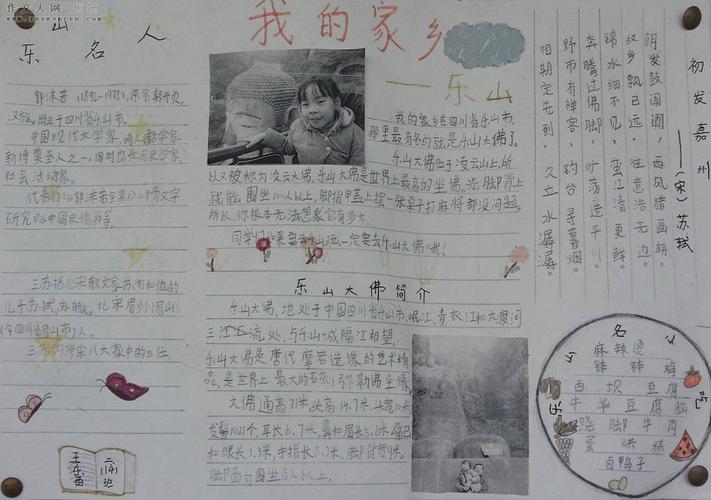 作文人网
我的家乡
——乐山
乐山名人
郭沫若(1892-1978),原名郭开贞,
汉族,出生于四川省乐山市。
中国现代文学家、
新诗奠基人之一,同时也是历史学家、
社会活动家。
三苏指北宋散文家苏洵和他的
儿子苏轼、苏辙。北宋眉州眉山
(今四川省眉山市)人。
三苏为唐宋八大家中的三位。
二(14)班
我的家乡在四川省乐山市,
那里最有名的就是乐山大佛了。
乐山大佛位于凌云山上,所
以又被称为凌云大佛,乐山大佛是世界上最高的坐佛,光脚背上
就能围坐100人以上,脚指甲盖上摆一张桌子打麻将都没问题,
所以,你根本无法想象它有多大。
同学们如果要去乐山玩,一定要去乐山大佛哦!
乐山大佛简介
乐山大佛,地处于中国四川省乐山市,岷江、青衣江和大渡河
三江汇流处,与乐山城隔江相望。
乐山大佛是唐代摩岩造像的艺术精
品,是世界上最大的石刻弥勒佛坐像。
大佛通高71米,头高14.7米,头宽10米,
发髻1021个,耳长6.7米,鼻和眉长5.6米,嘴巴
和眼长3.3米,手指长8.3米,脚背宽9米,
脚面可围坐百人以上。
初发嘉州
——(宋)苏轼
朝发鼓阗阗,西风猎画旃。
故乡飘已远,往意浩无边。
锦水细不见,蛮江清更鲜。
奔腾过佛脚,旷荡造平川。
野市有禅客,钓台寻暮烟。
相期定先到,久立水潺潺。
名
乐
麻辣烫
钵钵鸡
西坝豆腐
牛华豆腐脑
跷脚牛肉
蛋烘糕
卤鸭子